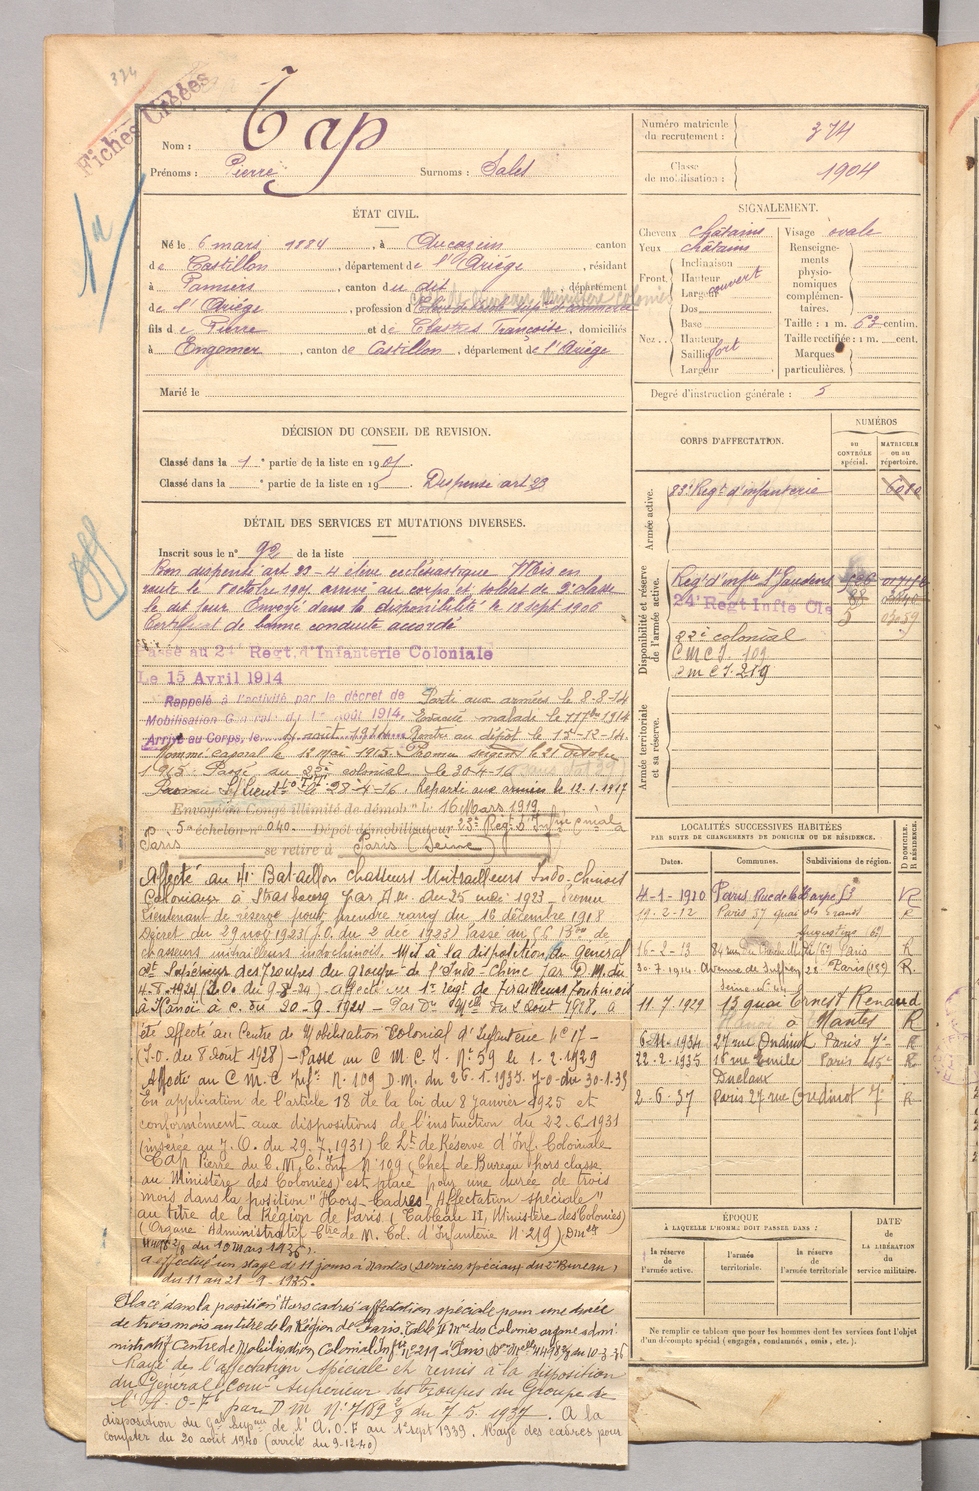 374
Fiches Créées
Nom : Cap
Prénoms : Pierre Surnoms : Sales
Numéro matricule du recrutement : 374
Classe de mobilisation : 1904
ÉTAT CIVIL.
Né le 6 mars 1884, à Aucazein canton
de Castillon, département de l'Ariége, résidant
à Pamiers, canton du dit, département
de l'Ariége, profession d
fils de Pierre et de Clastres Françoise, domiciliés
à Engomer, canton de Castillon, département de l'Ariége
Marié le
SIGNALEMENT.
Cheveux châtains
Yeux châtains
Front Inclinaison
Hauteur
Largeur couvert
Nez Dos
Base
Hauteur
Saillie fort
Largeur
Visage ovale
Renseignements physionomiques complémentaires.
Taille : 1 m. 63 centim.
Taille rectifiée : 1 m. cent.
Marques particulières.
Degré d'instruction générale : 5
DÉCISION DU CONSEIL DE REVISION.
Classé dans la 1e partie de la liste en 1905.
Classé dans la e partie de la liste en 19 . Dispensé art 23
DÉTAIL DES SERVICES ET MUTATIONS DIVERSES.
Inscrit sous le n° 92 de la liste
Bon dispensé art 23 - 4 élève ecclésiastique Mis en
route le 8 octobre 1905 arrivé au corps et soldat de 2e classe
le dit jour Envoyé dans la disponibilité le 18 sept 1906
Certificat de bonne conduite accordé
Passé au 24e Regt. d'Infanterie Coloniale
Le 15 Avril 1914
Rappelé à l'activité par le décret de
Mobilisation Générale du 1er Août 1914.
Arrivé au Corps, le 4 août 1914
Parti aux armées le 8-8-14
Evacué malade le 1914
Rentré au dépôt le 15-12-14.
Nommé caporal le 12 mai 1915 Promu sergent le 21 octobre
1915. Passé au 22e colonial le 30-4-16
Promu S/Lieutt le 28-4-16. Reparti aux armées le 12-1-1917
Envoyé en Congé illimité de démobon le 16 Mars 1919
5e échelon n° 040. Dépôt démobilisateur 23e Régt D'Infie Cniale à
Paris se retire à Paris (Seine)
Affecté au 41 Bataillon Chasseurs Mitrailleurs Indo-Chinois
Coloniaux à Strasbourg par du 25 mai 1923 - Promu
Lieutenant de réserve pour prendre rang du 16 décembre 1918
Décret du 29 nov 1923 (J.O. du 2 déc 1923) Passé au de
chasseurs mitrailleurs indochinois. Mis à la disposition du général
Ct Supérieur des Troupes du groupe de l'Indo-Chine par D.M. du
4-8-1924 (J.O. du 9-8-24) affecté au 1er régt de Tirailleurs Tonkinois
à Hanoï à c. du 20-9-1924 - Par Don Mlle du 2 Août 1928, a
été affecté au Centre de Mobilisation Colonial d'Infanterie N° 17 -
(J.O. du 8 Août 1928) - Passé au C M C I. N° 59 le 1-2-1929
Affecté au C M C Infie N. 109 D.M. du 26.1.1935 J-O-du 30-1-35
En application de l'article 18 de la loi du 8 Janvier 1925 et
conformément aux dispositions de l'instruction du 22-6-1931
(insérée au J.O. du 29.7.1931) le Lt de Réserve d'Inf. Coloniale
Cap Pierre du C. M. C. Inf N° 109 (Chef de Bureau hors classe
au Ministère des Colonies) est placé pour une durée de trois
mois dans la position "Hors Cadres Affectation spéciale"
au titre de la Région de Paris (Tableau II, Ministère des Colonies)
(Organe Administrateur Ctre de M. Col. d'Infanterie N° 219)
du 10 Mars 1936).
a effectué un stage de 11 jours à Nantes (Services spéciaux du 2e Bureau)
du 11 au 21 - 9 - 1935.
Placé dans la position "Hors cadres" affectation spéciale pour une durée
de trois mois au titre de la Région de Paris. Table II Mre des Colonies organe admi-
nistratif Centre de Mobilisation Colonial Infie N° 219 à Paris du 10-3-36
Rayé de l'affectation spéciale et remis à la disposition
du Général Comt Supérieur des Troupes du Groupe de
l'A-O-F par D M N° 7189 2/8 du 7.5.1937. A la
disposition du Gal Supeur de l'A.O.F au 1er sept 1939. Rayé des cadres pour
compter du 20 août 1940 (arrêté du 9-12-40)
CORPS D'AFFECTATION.
NUMÉROS
DU CONTRÔLE spécial.
MATRICULE ou au répertoire.
Armée active.
83e Regt d'infanterie
Disponibilité et réserve de l'armée active.
Regt d'infie St Gaudens
24e Regt Infie Cle
22e colonial
C M C I. 109
C M C I. 219
Armée territoriale et sa réserve.
LOCALITÉS SUCCESSIVES HABITÉES
PAR SUITE DE CHANGEMENTS DE DOMICILE OU DE RÉSIDENCE.
Dates. Communes. Subdivisions de région. D DOMICILE. R RÉSIDENCE.
4-1-1910 Paris Rue de la Harpe 53 R
19-2-12 Paris 37 quai des Grands Augustins (6e) R
16-2-13 84 rue du Cherche Midi (6e) Paris R
30-7-1914 Avenue de Suffren 22 Paris (15e) R.
11.7.1929 13 quai Ernest Renaud
à Nantes R
1934 27 rue Oudinot Paris 7e R
22-2-1935 16 rue Emile Duclaux Paris 15e R
2-6-37 Paris 27 rue Oudinot 7e R
ÉPOQUE
À LAQUELLE L'HOMME DOIT PASSER DANS :
la réserve de l'armée active.
l'armée territoriale.
la réserve de l'armée territoriale
DATE de LA LIBÉRATION du service militaire.
Ne remplir ce tableau que pour les hommes dont les services font l'objet
d'un décompte spécial (engagés, condamnés, omis, etc.)